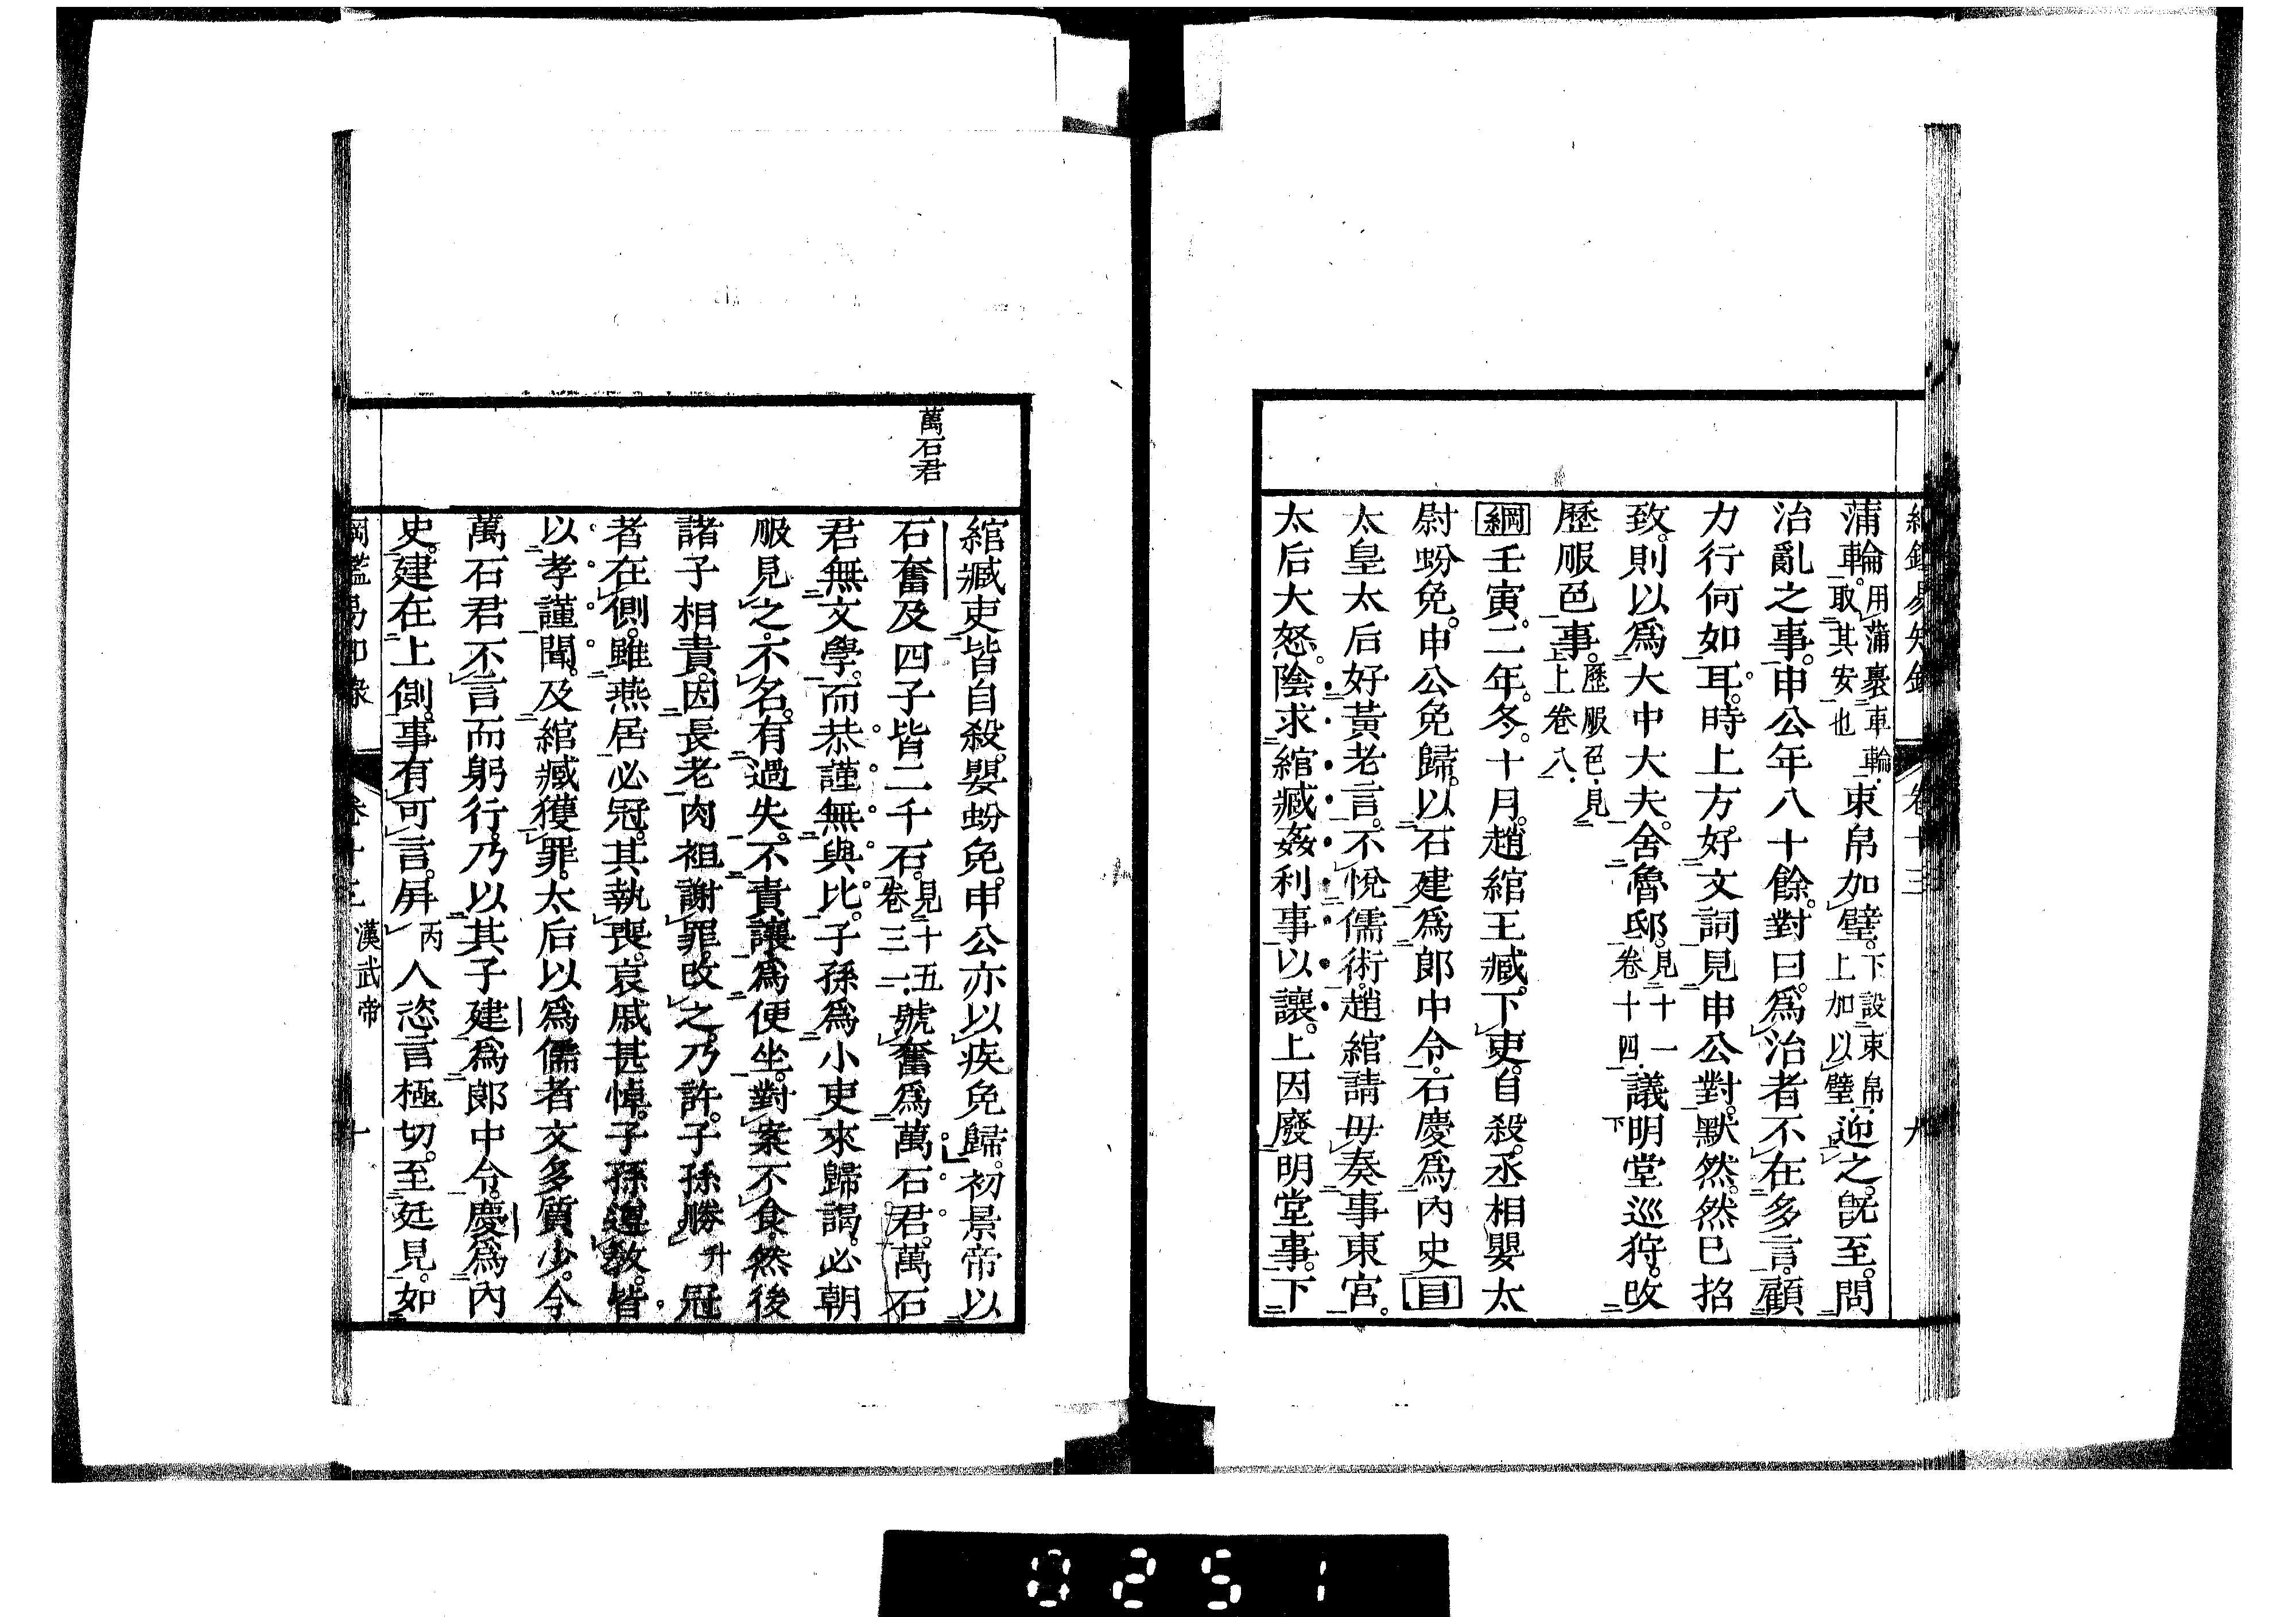 綱鑑易知錄 卷十三 九
蒲車輪。用蒲裹車輪、取其安也束帛加璧。下設束帛、上加以璧、迎之。旣至。問
治亂之事。申公年八十餘。對曰。爲治者不在多言。顧
力行何如耳。時上方好文詞。見申公對。默然。然已招
致。則以爲大中大夫。舍魯邸。見十一卷十四、議明堂巡狩。改
歷服色事。歷服色、見上卷八、
綱壬寅。二年。冬。十月。趙綰王臧。下吏。自殺。丞相嬰太
尉蚡免。申公免歸。以石建爲郎中令。石慶爲內史目
太皇太后好黃老言。不悅儒術。趙綰請毋奏事東宮。
太后大怒。陰求綰臧姦利事。以讓。上因廢明堂事。下
萬石君
綰臧吏皆自殺。嬰蚡免。申公亦以疾免歸。初景帝以
石奮及四子皆二千石。見十五卷三一、號奮爲萬石君。萬石
君無文學。而恭謹無與比。子孫爲小吏來歸謁。必朝
服見之。不名。有過失。不責讓。爲便坐。對案不食。然後
諸子相責。因長老肉袒謝罪。改之。乃許。子孫勝升冠
者在側。雖燕居必冠。其執喪。哀戚甚悼。子孫遵敎。皆
以孝謹聞。及綰臧獲罪。太后以爲儒者文多質少。今
萬石君不言而躬行。乃以其子建爲郎中令。慶爲內
史。建在上側。事有可言。屏丙人恣言極切。至廷見。如
綱鑑易知錄 卷十三 漢武帝 十
0251